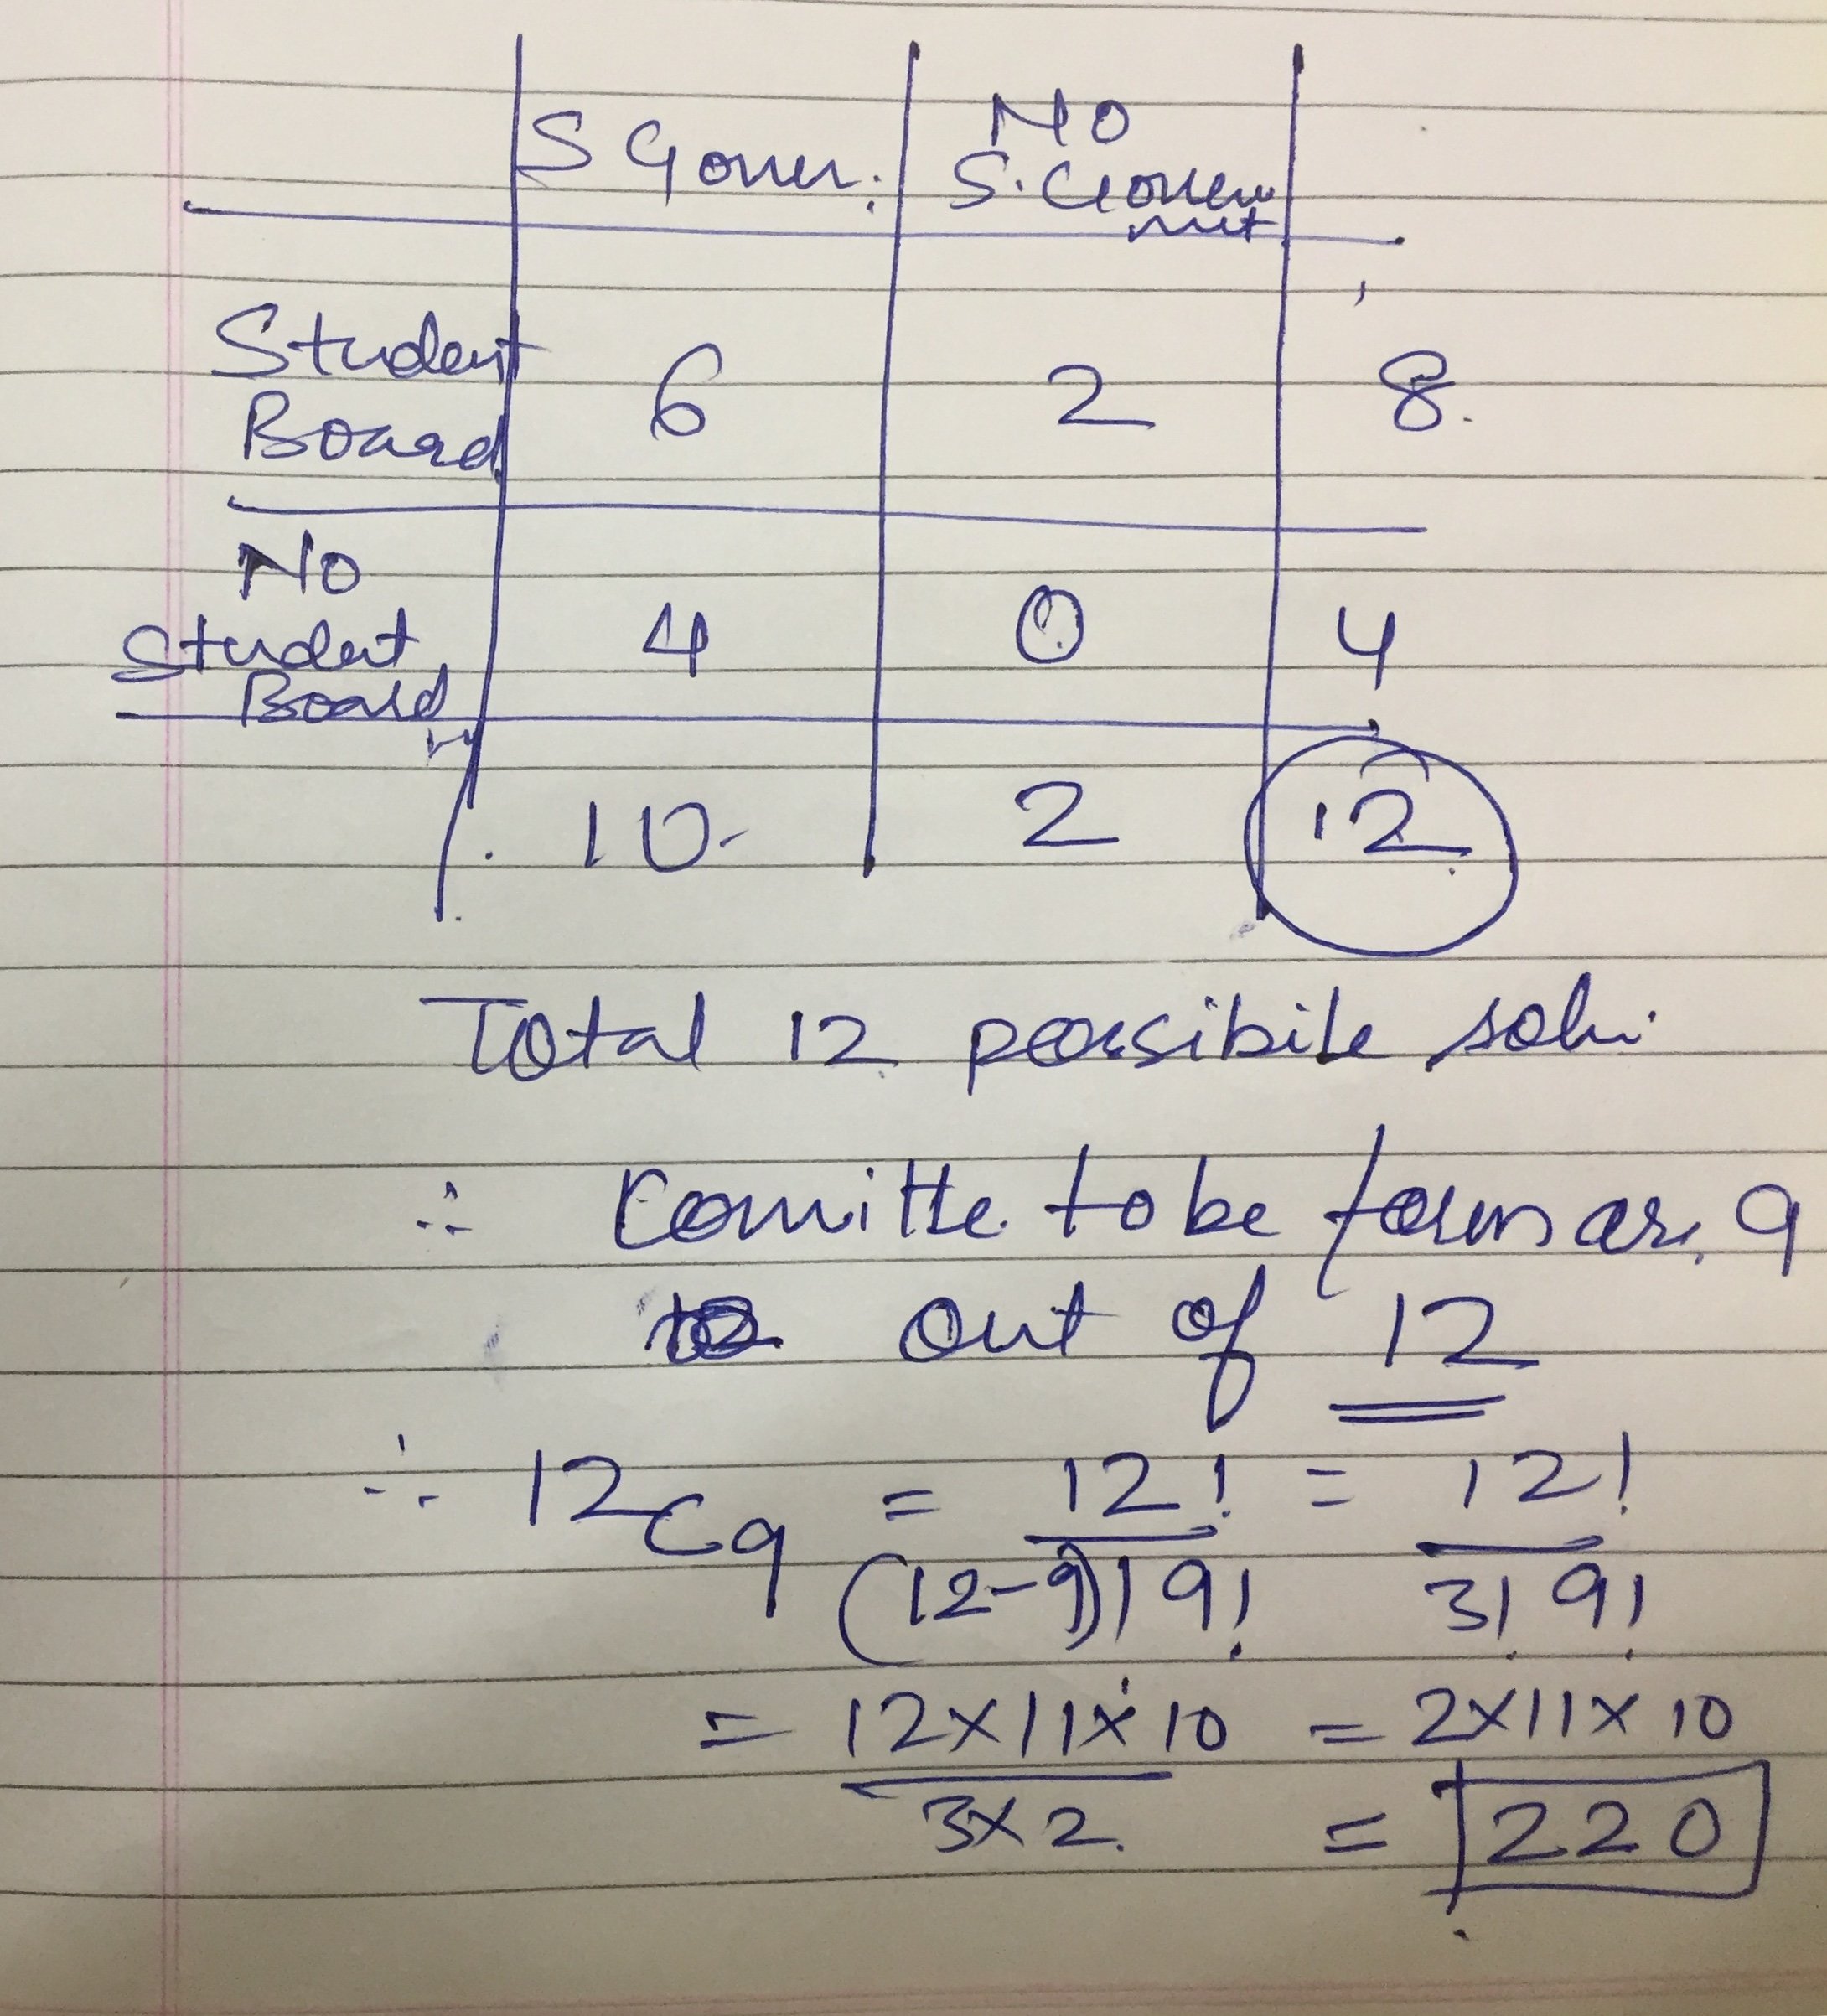 S Gover. NO
S. Governmet
Student 6 2 8.
Board
No
Student 4 0 4
Board
10 2 12
Total 12 possibile soln.
∴ Comitte to be form are 9
out of 12
∴ 12C9 = 12! / (12-9)! 9! = 12! / 3! 9!
= 12×11×10 / 3×2. = 2×11×10
= 220